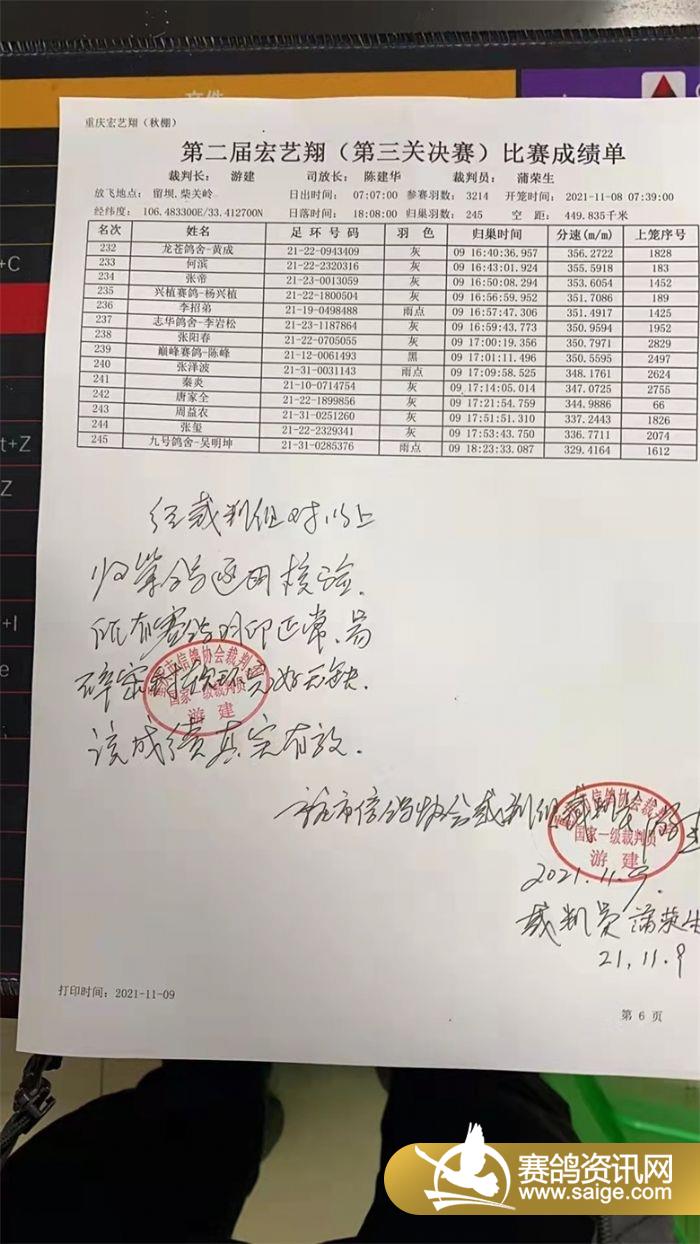 重庆宏艺翔（秋棚）
第二届宏艺翔（第三关决赛）比赛成绩单
裁判长： 游建 司放长： 陈建华 裁判员： 蒲荣生
放飞地点： 留坝.柴关岭 日出时间： 07:07:00 参赛羽数： 3214 开笼时间： 2021-11-08 07:39:00
经纬度： 106.483300E/33.412700N 日落时间： 18:08:00 归巢羽数： 245 空 距： 449.835千米
名次 姓名 足 环 号 码 羽 色 归巢时间 分速(m/m) 上笼序号
232 龙苍鸽舍-黄成 21-22-0943409 灰 09 16:40:36.957 356.2722 1828
233 何滨 21-22-2320316 灰 09 16:43:01.924 355.5918 183
234 张帝 21-23-0013059 灰 09 16:50:08.294 353.6054 1452
235 兴植赛鸽-杨兴植 21-22-1800504 灰 09 16:56:59.952 351.7086 189
236 李招弟 21-19-0498488 雨点 09 16:57:47.306 351.4917 1425
237 志华鸽舍-李岩松 21-23-1187864 灰 09 16:59:43.773 350.9594 1952
238 张阳春 21-22-0705055 灰 09 17:00:19.356 350.7971 2829
239 巅峰赛鸽-陈峰 21-12-0061493 黑 09 17:01:11.496 350.5595 2497
240 张洋波 21-31-0031143 雨点 09 17:09:58.525 348.1761 2624
241 秦炎 21-10-0714754 灰 09 17:14:05.014 347.0725 2755
242 唐家全 21-22-1899856 灰 09 17:21:54.759 344.9886 66
243 周益农 21-31-0251260 灰 09 17:51:51.310 337.2443 1826
244 张玺 21-22-2329341 灰 09 17:53:43.750 336.7711 2074
245 九号鸽舍-吴明坤 21-31-0285376 雨点 09 18:23:33.087 329.4164 1612
经裁判组对以上
归巢鸽逐羽核验.
所有赛鸽羽印正常.易
碎密封软环完好无缺.
该成绩真实有效.
市信鸽协会裁判员
国家一级裁判员
游建
市信鸽协会裁判组裁判长 游建
市信鸽协会裁判员
国家一级裁判员
游建
2021.11.9.
裁判员 蒲荣生
21.11.9
打印时间：2021-11-09
第 6 页
赛鸽资讯网
www.saige.com
+C
t+Z
Z
+I
e